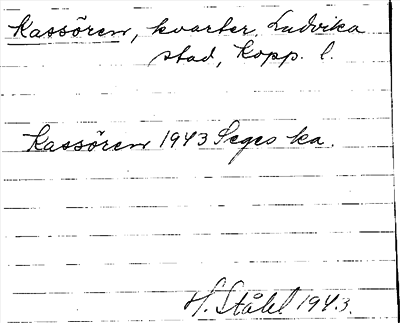 Kassören, kvarter. Ludvika
stad, Kopp. l.
Kassören 1943 Seges ka.
H. Ståhl 1943.